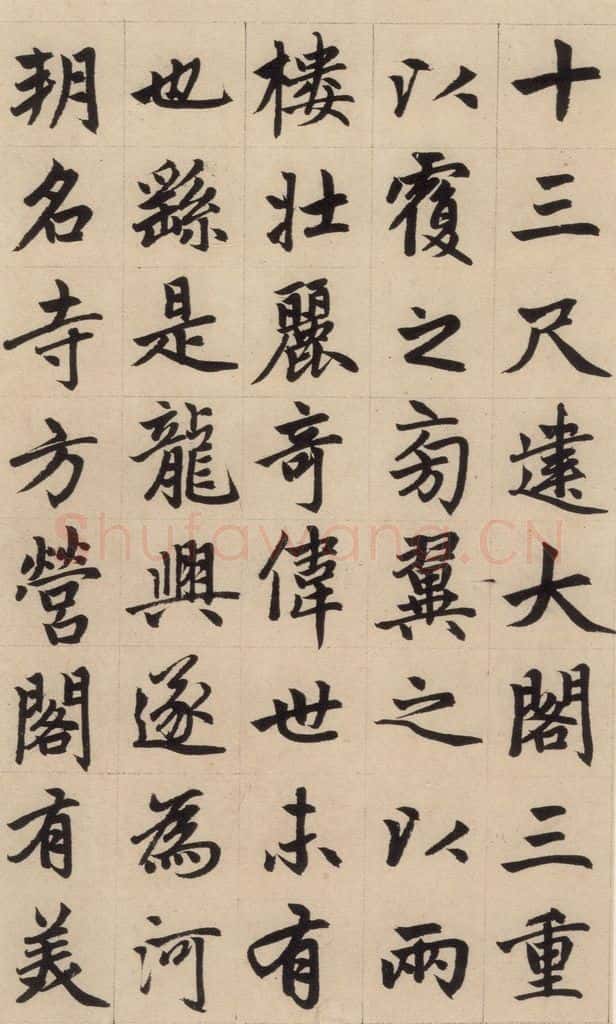 十三尺建大閣三重
以覆之旁翼之以兩
樓壯麗奇偉世未有
也繇是龍興遂為河
朔名寺方營閣有美
Shufawang.CN